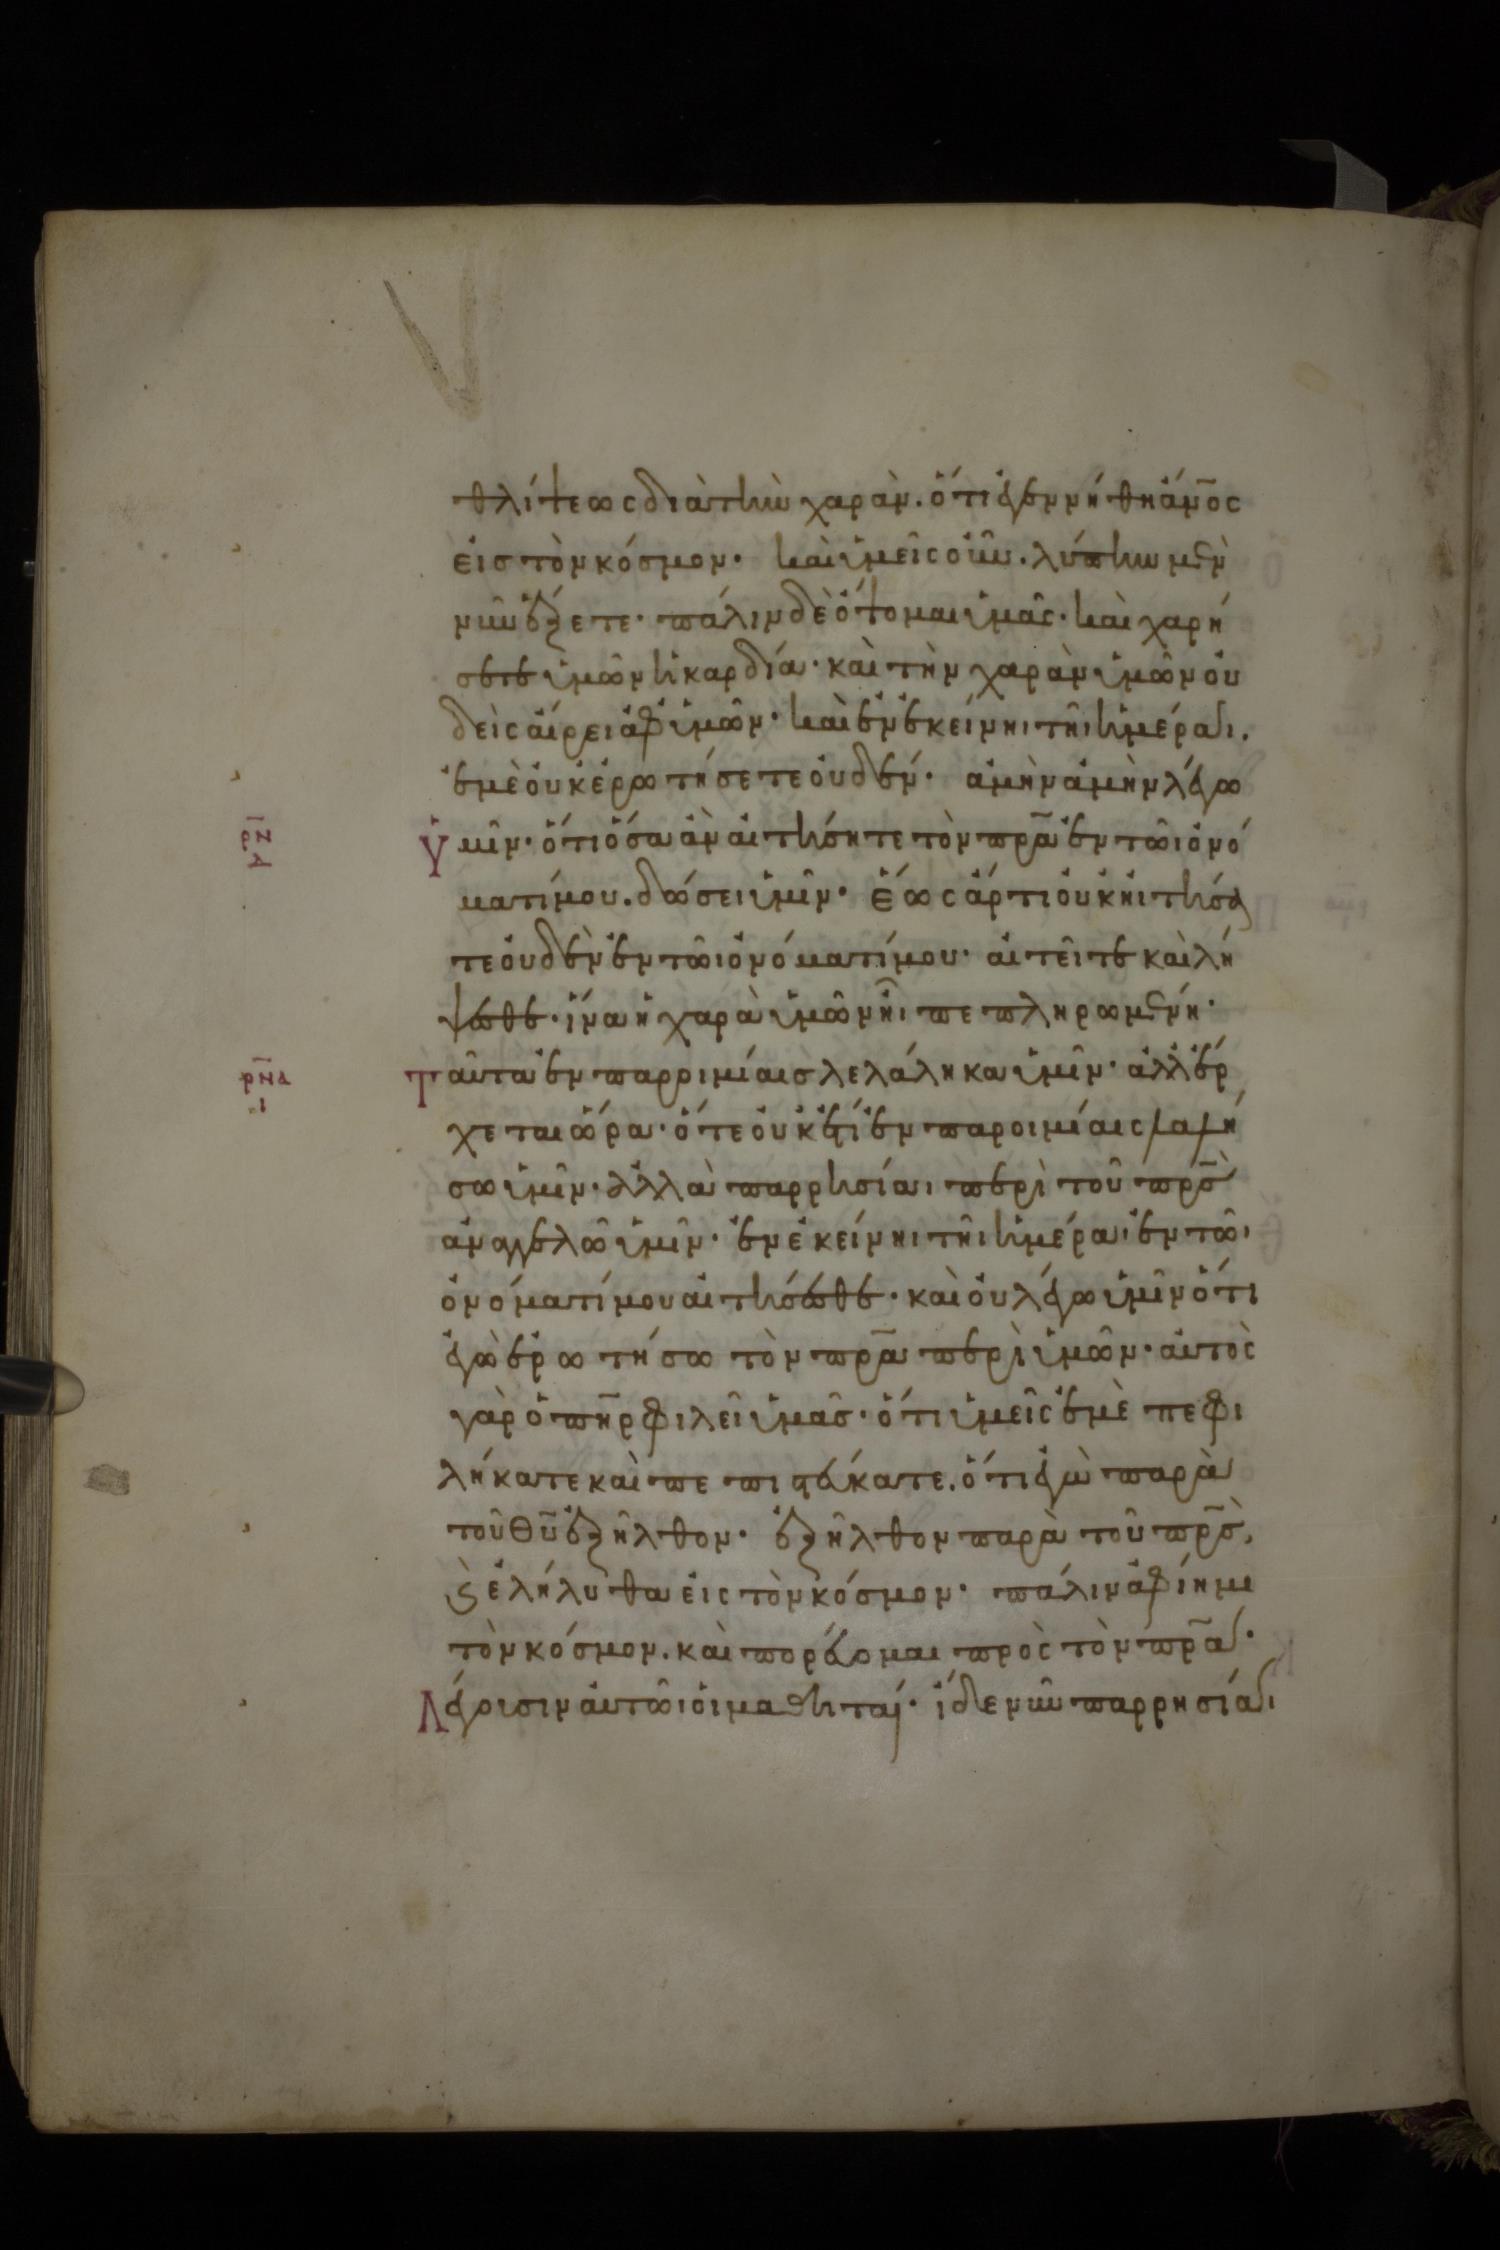 θλίψεως διὰ τὴν χαράν. ὅτι ἐγεννήθη ἄν̅ο̅ς
εἰς τὸν κόσμον· καὶ ὑμεῖς οὖν. λύπην μὲν
νῦν ἕξετε· πάλιν δὲ ὄψομαι ὑμᾶς· καὶ χαρή
σεται ὑμῶν ἡ καρδία· καὶ τὴν χαρὰν ὑμῶν οὐ
δεὶς αἴρει ἀφ' ὑμῶν· καὶ ἐν ἐκείνηι τῆι ἡμέραι.
ἐμὲ οὐκ ἐρωτήσετε οὐδέν· ἀμὴν ἀμὴν λέγω
ὑμῖν· ὅτι ὅσα ἂν αἰτήσητε τὸν πρ̅α̅ ἐν τῶι ὀνό
ματί μου. δώσει ὑμῖν· ἕως ἄρτι οὐκ ἠιτήσα
τε οὐδὲν ἐν τῶι ὀνόματί μου· αἰτεῖτε καὶ λή
ψεσθε· ἵνα ἡ χαρὰ ὑμῶν ἦι πεπληρωμένη·
ρ̅ν̅α̅ ι
Ταῦτα ἐν παρριμίαις λελάληκα ὑμῖν· ἀλλ' ἔρ
χεται ὥρα· ὅτε οὐκ ἔτι ἐν παροιμίαις λαλή
σω ὑμῖν· ἀλλὰ παρρησίαι περὶ τοῦ πρ̅ς̅
ἀναγγελῶ ὑμῖν· ἐν ἐκείνηι τῆι ἡμέραι ἐν τῶι
ὀνόματί μου αἰτήσεσθε· καὶ οὐ λέγω ὑμῖν ὅτι
ἐγὼ ἐρωτήσω τὸν πρ̅α̅ περὶ ὑμῶν· αὐτὸς
γὰρ ὁ πη̅ρ̅ φιλεῖ ὑμᾶς· ὅτι ὑμεῖς ἐμὲ πεφι
λήκατε καὶ πεπιστεύκατε. ὅτι ἐγὼ παρὰ
τοῦ θ̅υ̅ ἐξῆλθον· ἐξῆλθον παρὰ τοῦ πρ̅ς̅,
ϗ ἐλήλυθα εἰς τὸν κόσμον· πάλιν ἀφίημι
τὸν κόσμον. καὶ πορεύομαι πρὸς τὸν πρ̅α̅·
Λέγουσιν αὐτῶι οἱ μαθηταί· ἴδε νῦν παρρησίαι